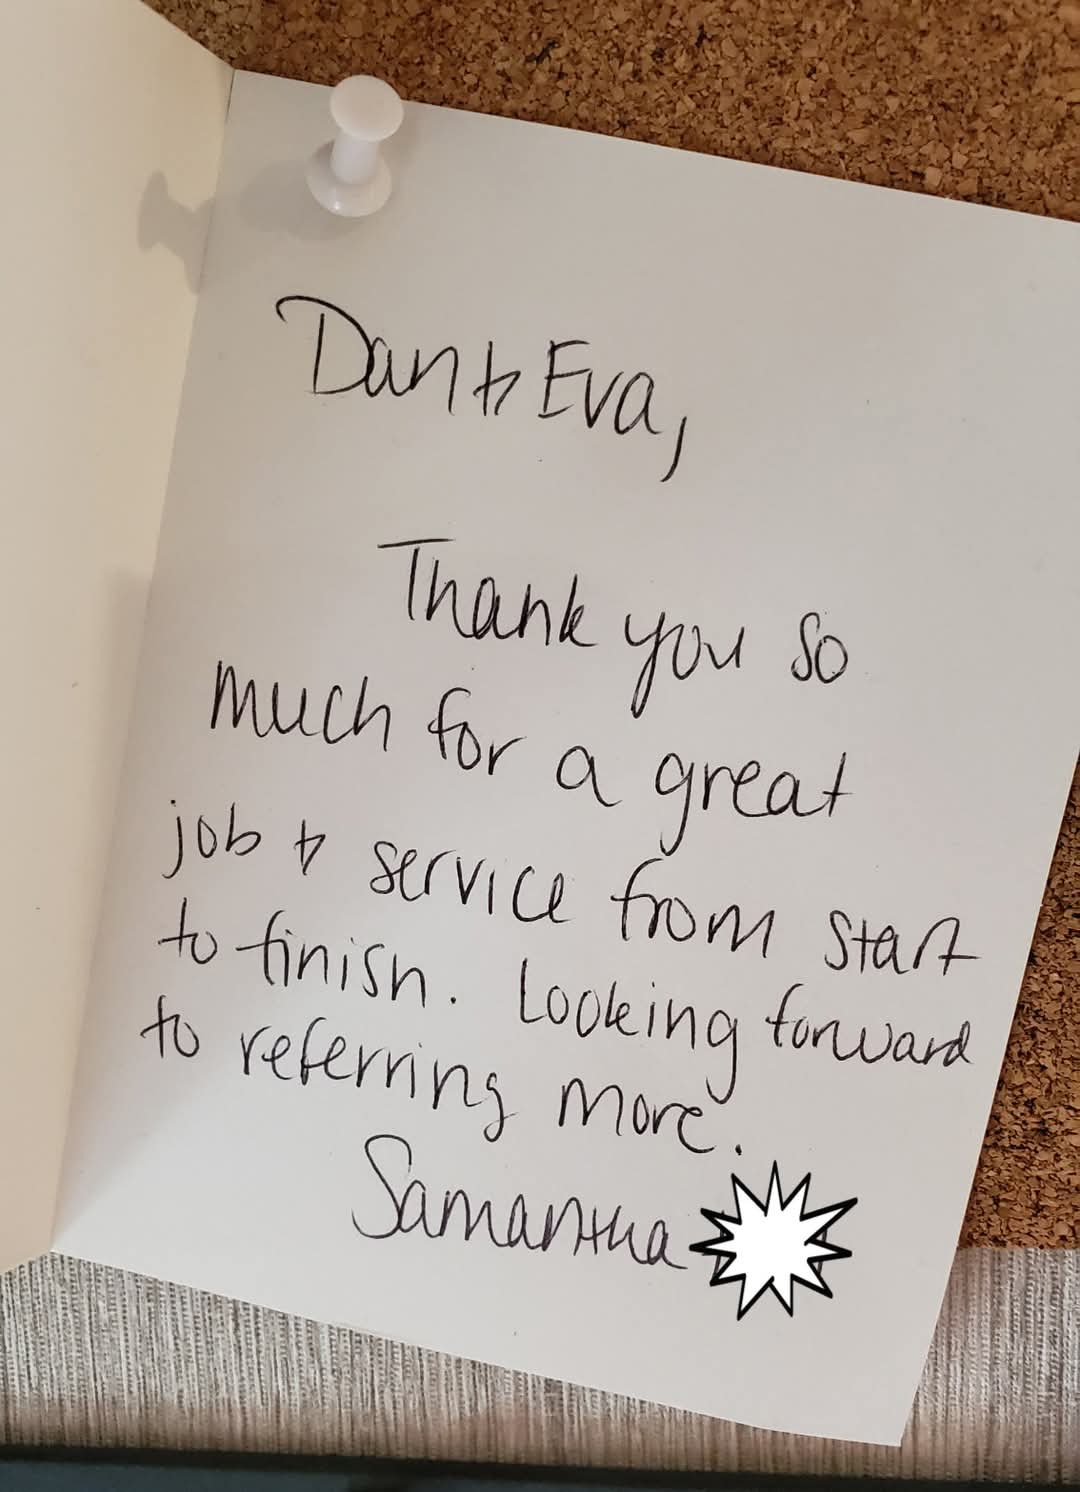 Dan & Eva,
Thank you so
much for a great
job & service from start
to finish. Looking forward
to referring more.
Samantha